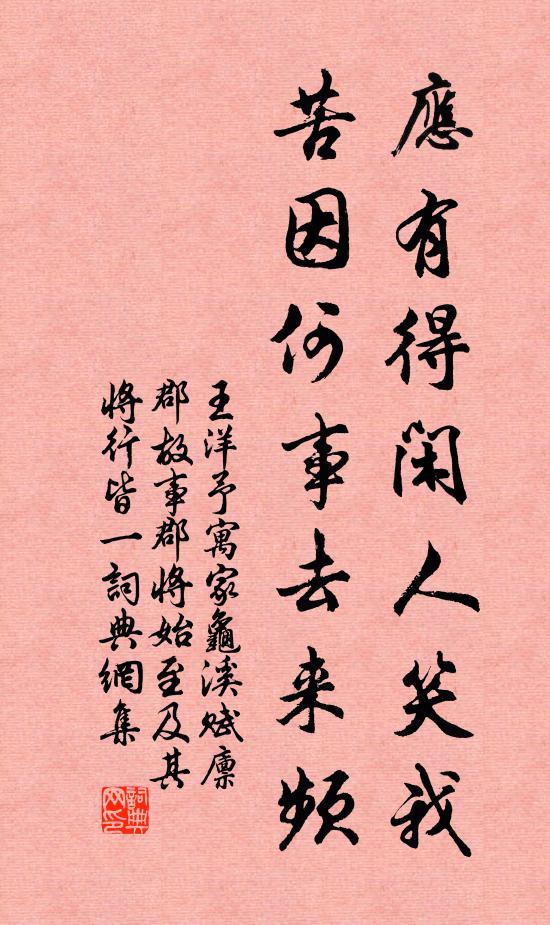 應有得閑人笑我
苦因何事去来頻
王洋予寓家龜溪賦廪
郡故事郡將始至及其
將行皆一詞典網集
詞典網印